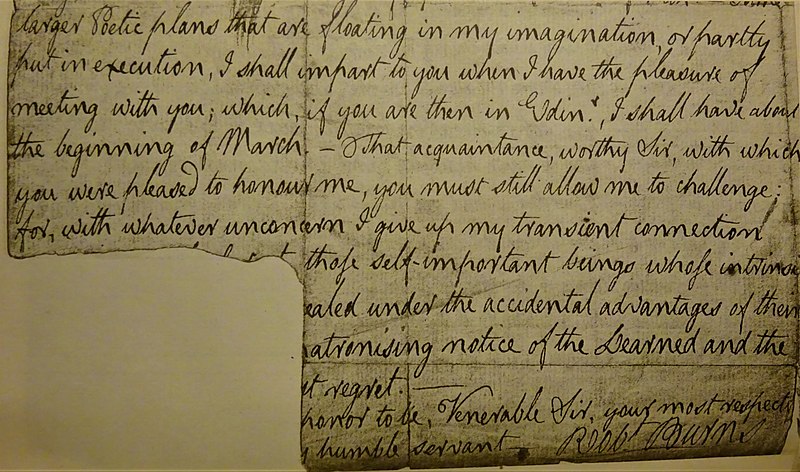 larger Poetic plans that are floating in my imagination, or partly
put in execution, I shall impart to you when I have the pleasure of
meeting with you; which, if you are then in Edinr, I shall have about
the beginning of March. — That acquaintance, worthy Sir, with which
you were pleased to honour me, you must still allow me to challenge;
for, with whatever unconcern I give up my transient connection
those self-important beings whose intrins
ealed under the accidental advantages of their
atronising notice of the Learned and the
st regret. —
honor to be, Venerable Sir, your most respect
humble servant — Robt Burns